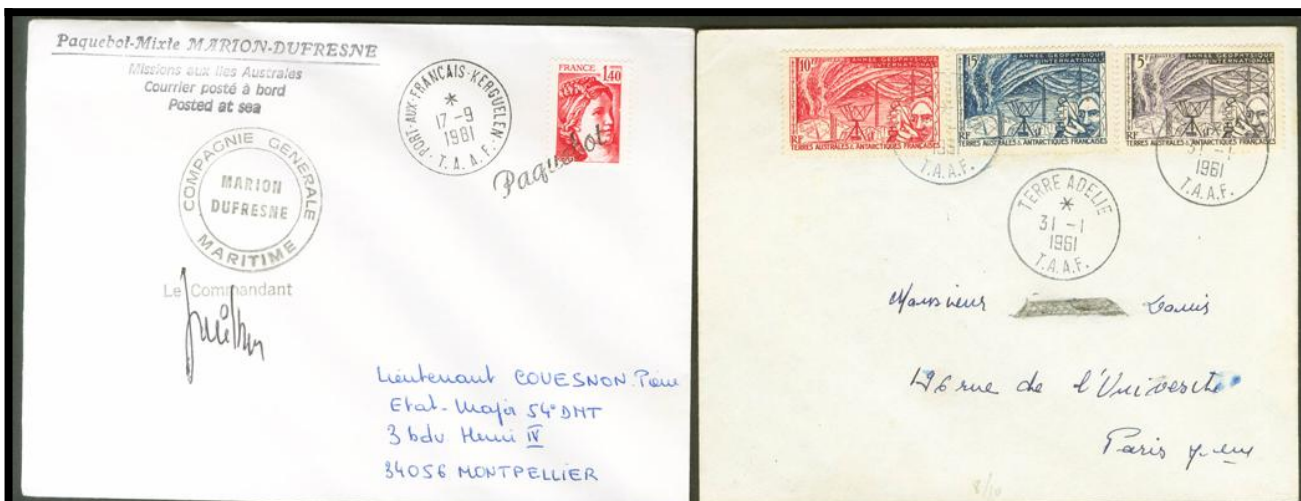 Paquebot-Mixte MARION-DUFRESNE
Missions aux Iles Australes
Courrier posté à bord
Posted at sea
COMPAGNIE GENERALE MARITIME
MARION
DUFRESNE
Le Commandant
PORT-AUX-FRANCAIS-KERGUELEN
17-9
1981
T.A.A.F.
FRANCE
1,40
Paquebot
Lieutenant COUESNON Pierre
Etat-Major 54° DMT
3 bdv Henri IV
34056 MONTPELLIER
10F ANNÉE GÉOPHYSIQUE INTERNATIONALE
RF
TERRES AUSTRALES & ANTARCTIQUES FRANÇAISES
15F ANNÉE GÉOPHYSIQUE INTERNATIONALE
RF
TERRES AUSTRALES & ANTARCTIQUES FRANÇAISES
5F ANNÉE GÉOPHYSIQUE INTERNATIONALE
RF
TERRES AUSTRALES & ANTARCTIQUES FRANÇAISES
1961
T.A.A.F.
31-1
1961
T.A.A.F.
TERRE ADELIE
31-1
1961
T.A.A.F.
Monsieur Louis
196 rue de l'Université
Paris
8/10